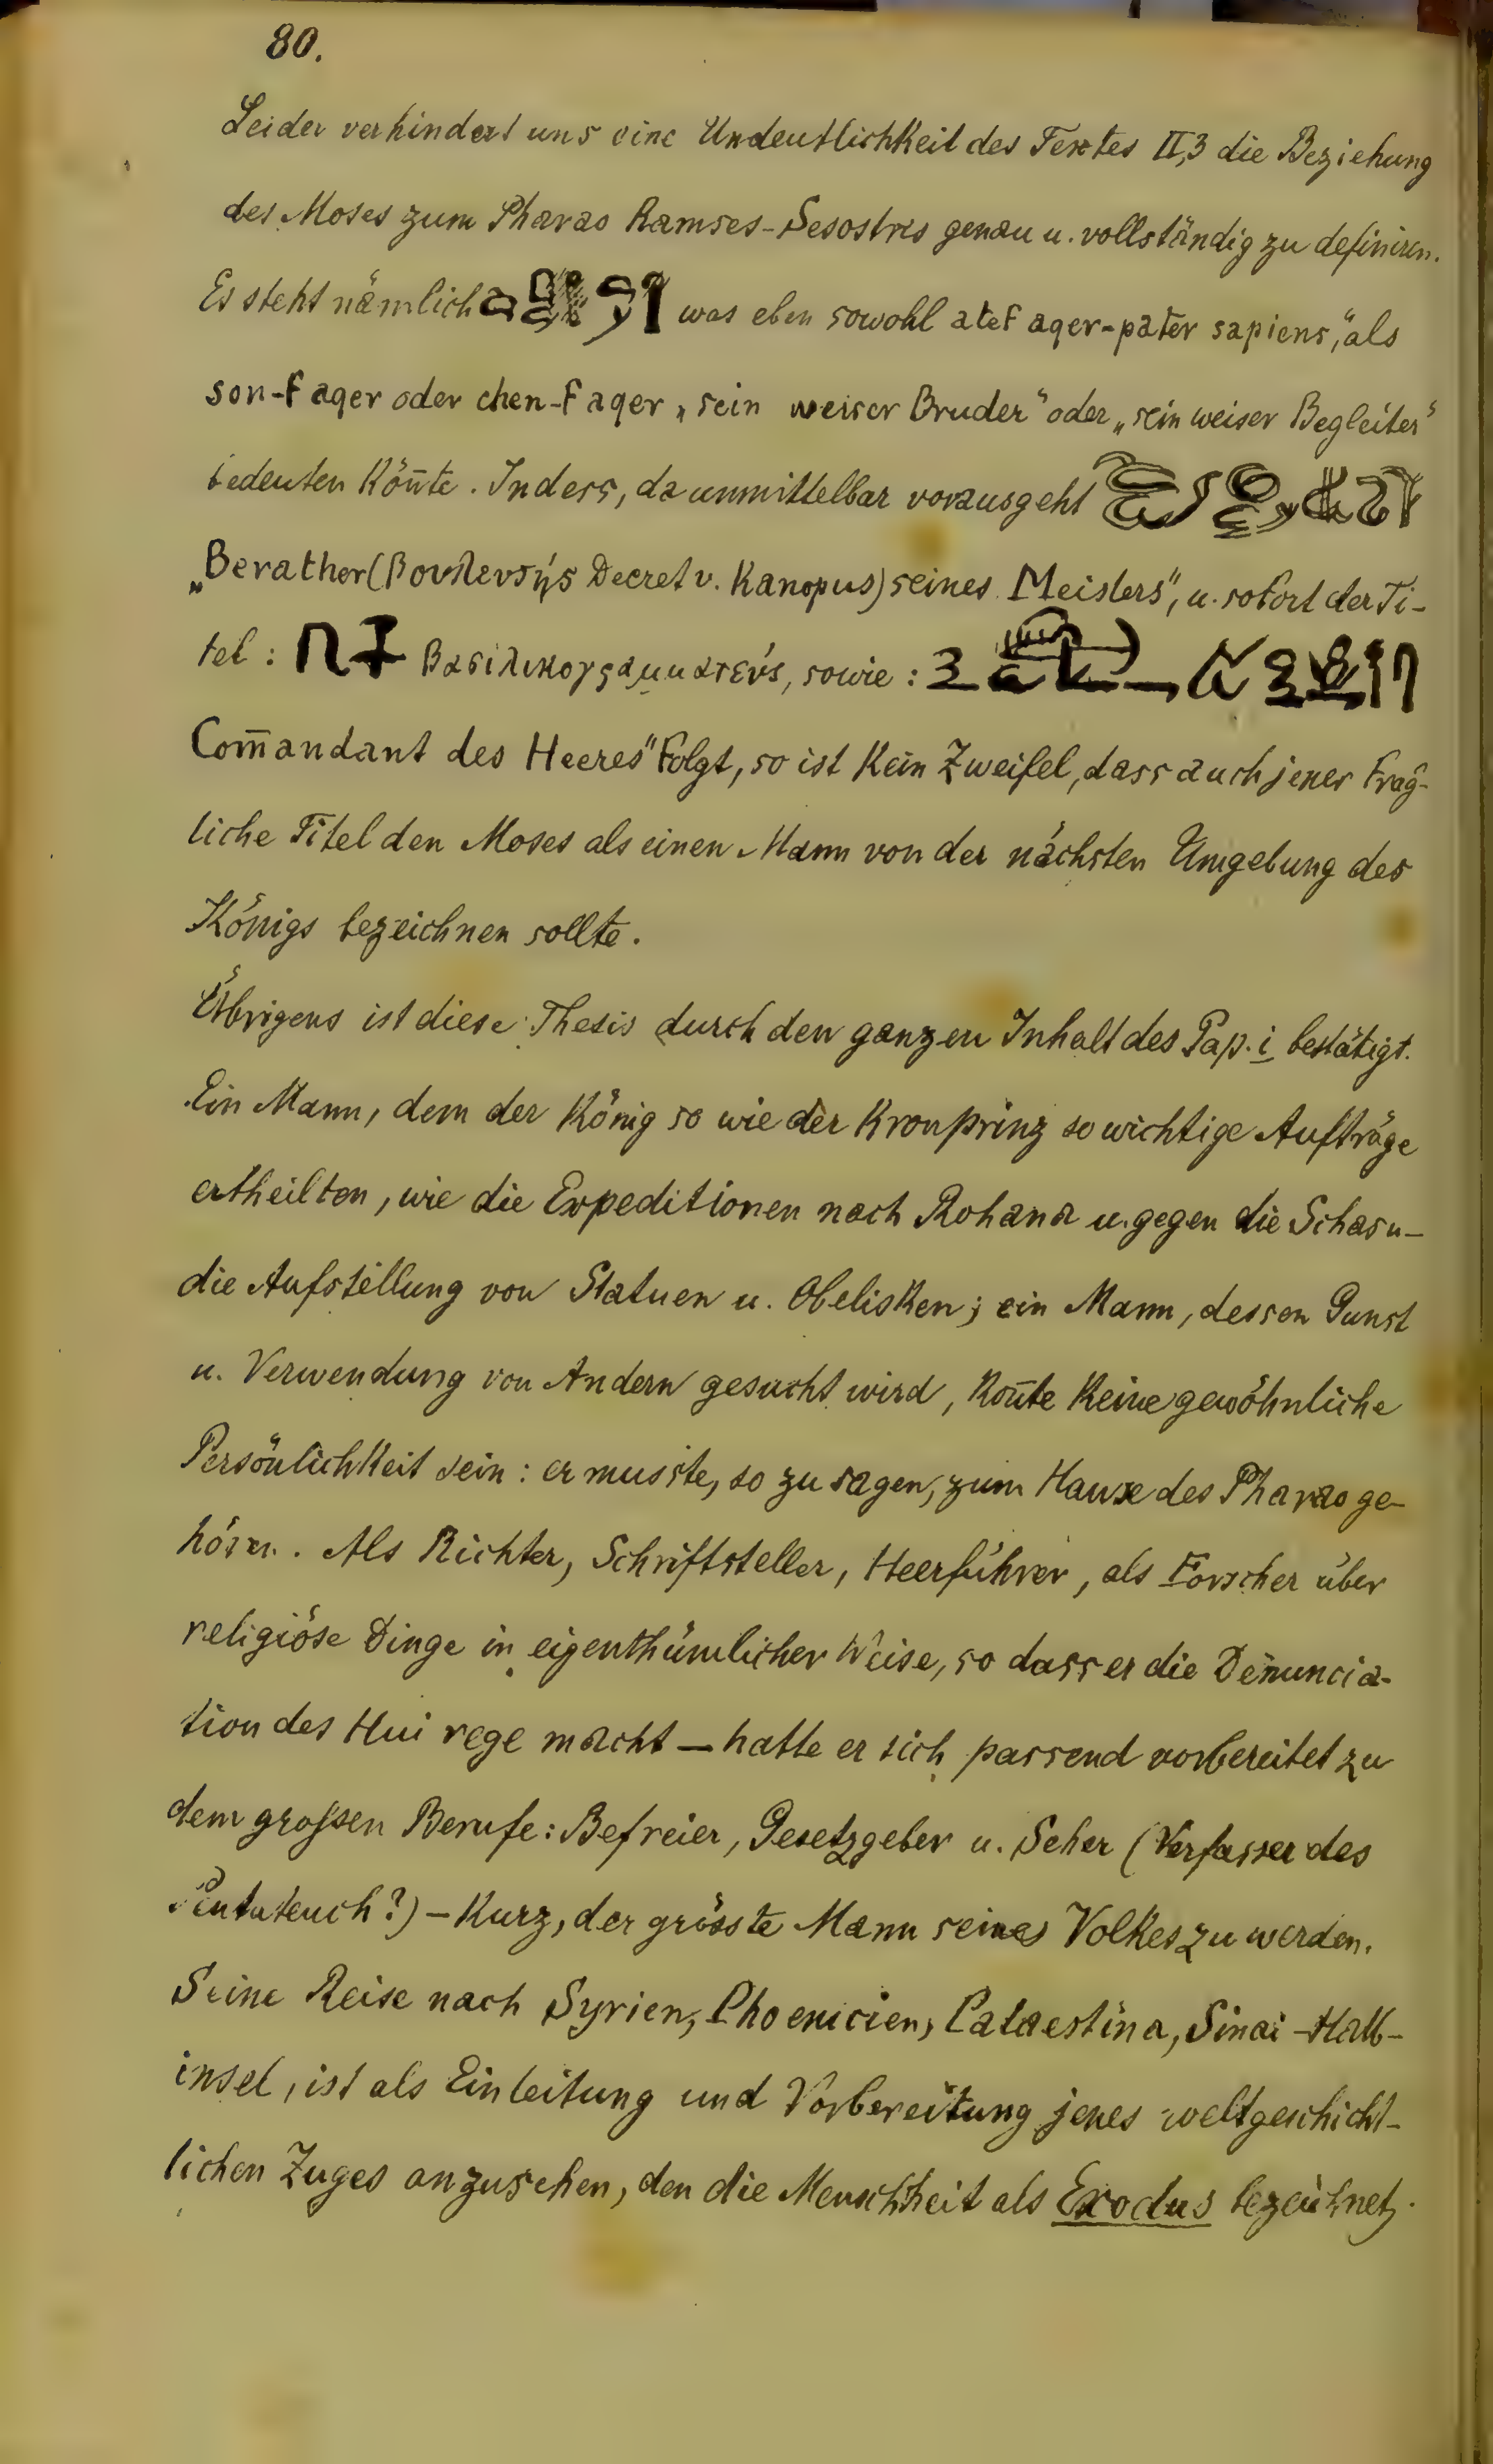 80.
Leider verhindert uns eine Undeutlichkeit des Textes II,3 die Beziehung
des Moses zum Pharao Ramses-Sesostris genau u. vollständig zu definiren.
Es steht nämlich was eben sowohl atef aqer-pater sapiens," als
son-f aqer oder chen-f aqer „sein weiser Bruder" oder „sein weiser Begleiter"
bedeuten kön̄te. Indess, da unmittelbar vorausgeht
„Berather (Βουλευτής Decret v. Kanopus) seines Meisters", u. sofort der Ti-
tel: Βασιλικογραμματεύς, sowie:
Com̄andant des Heeres" folgt, so ist kein Zweifel, dass auch jener frag-
liche Titel den Moses als einen Mann von der nächsten Umgebung des
Königs bezeichnen sollte.
Übrigens ist diese Thesis durch den ganzen Inhalt des Pap. i bestätigt.
Ein Mann, dem der König so wie der Kronprinz so wichtige Aufträge
ertheilten, wie die Expeditionen nach Rohana u. gegen die Schasu-
die Aufstellung von Statuen u. Obelisken; ein Mann, dessen Gunst
u. Verwendung von Andern gesucht wird, kon̄te keine gewöhnliche
Persönlichkeit sein: er musste, so zu sagen, zum Hause des Pharao ge-
hören. Als Richter, Schriftsteller, Heerführer, als Forscher über
religiöse Dinge in eigenthümlicher Weise, so dass er die Denuncia-
tion des Hui rege macht — hatte er sich passend vorbereitet zu
dem grossen Berufe: Befreier, Gesetzgeber u. Seher (Verfasser des
Pentateuch?) – kurz, der grösste Mann seines Volkes zu werden.
Seine Reise nach Syrien, Phoenicien, Palaestina, Sinai-Halb-
insel, ist als Einleitung und Vorbereitung jenes weltgeschicht-
lichen Zuges anzusehen, den die Menschheit als Exodus bezeichnet.